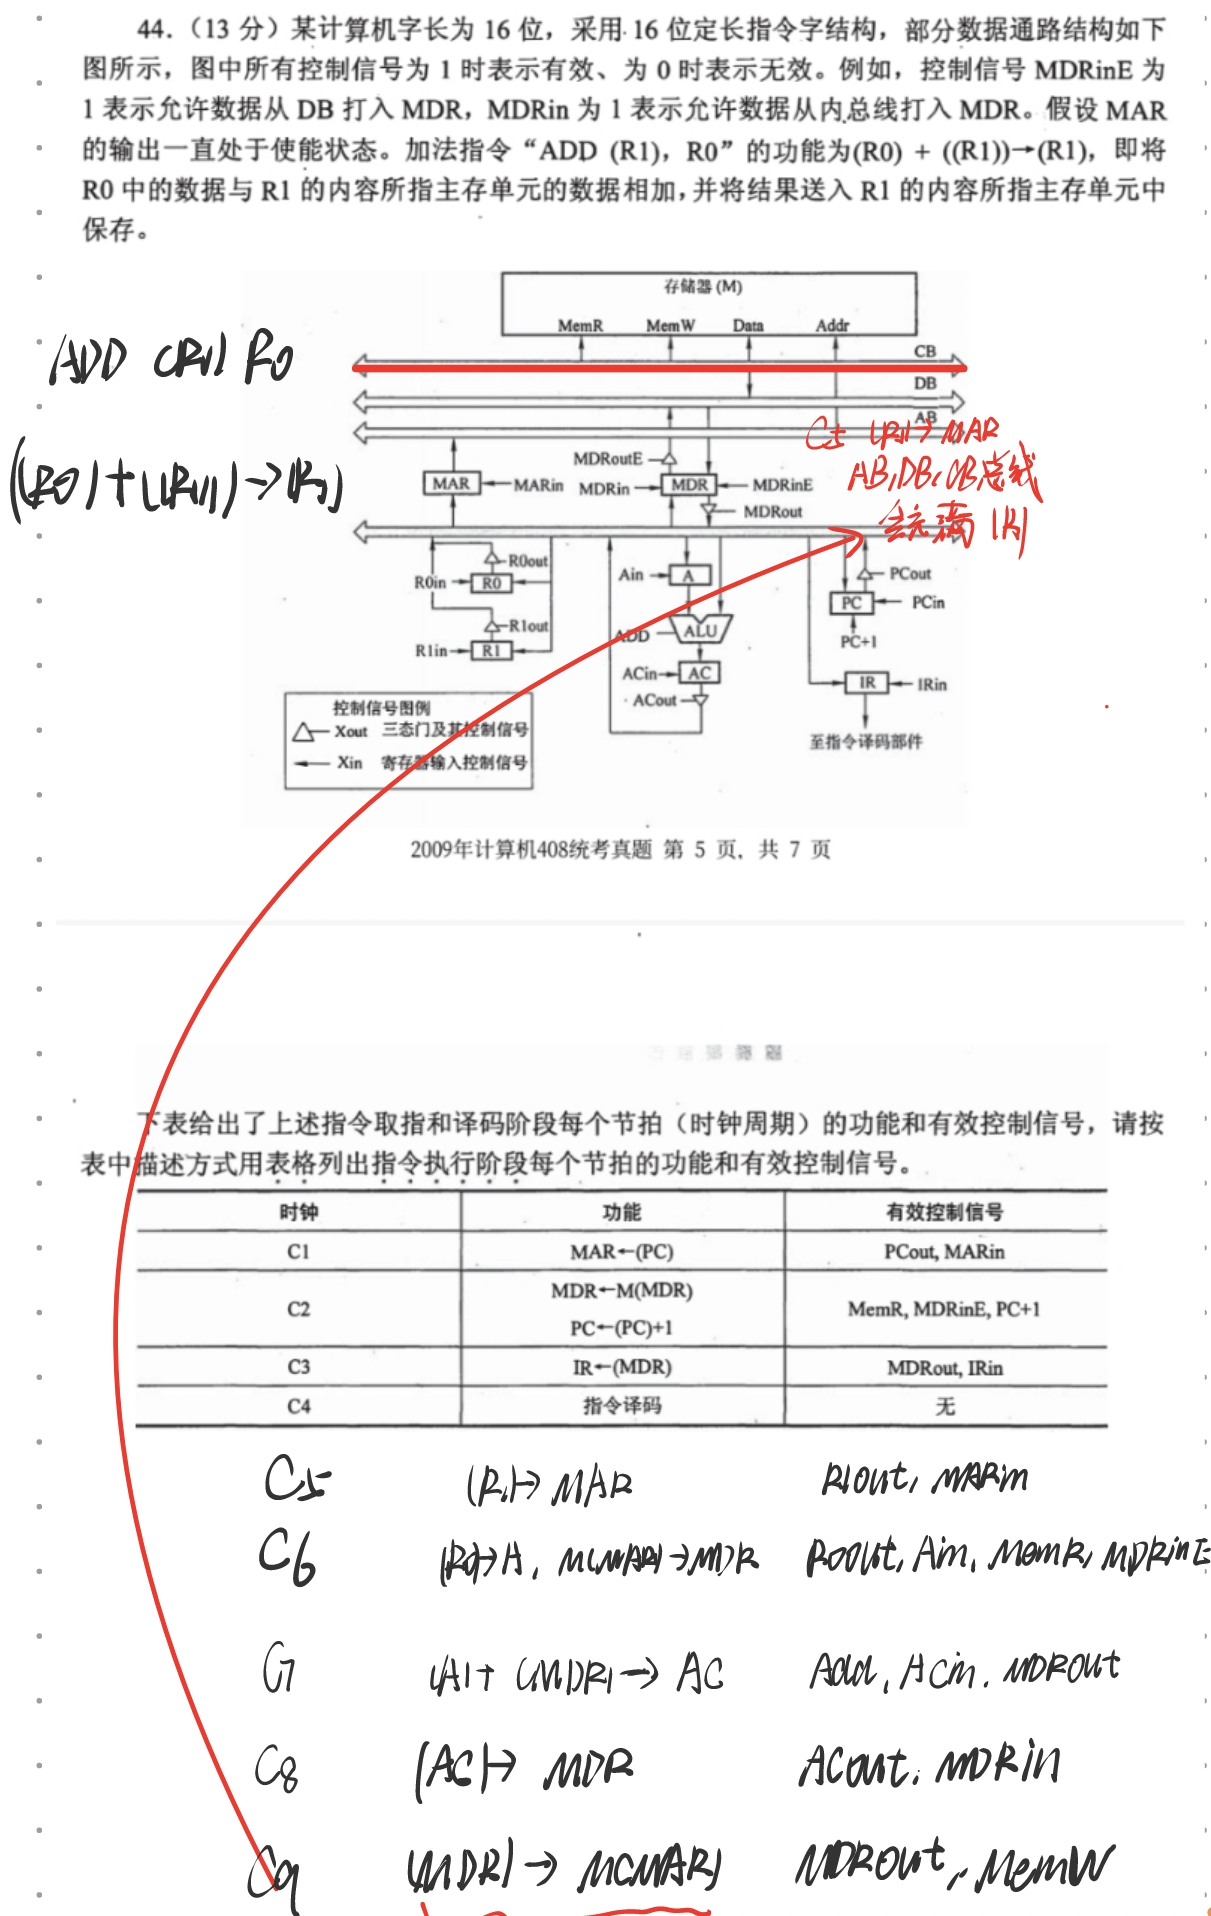 44.（13 分）某计算机字长为 16 位，采用 16 位定长指令字结构，部分数据通路结构如下
图所示，图中所有控制信号为 1 时表示有效、为 0 时表示无效。例如，控制信号 MDRinE 为
1 表示允许数据从 DB 打入 MDR，MDRin 为 1 表示允许数据从内总线打入 MDR。假设 MAR
的输出一直处于使能状态。加法指令“ADD (R1)，R0”的功能为(R0) + ((R1))→(R1)，即将
R0 中的数据与 R1 的内容所指主存单元的数据相加，并将结果送入 R1 的内容所指主存单元中
保存。
存储器 (M)
MemR MemW Data Addr
ADD (R1) R0
CB
DB
AB
C5 (R1)→MAR
MDRoutE
AB,DB,CB总线
((R0)+((R1))→(R1)
MAR MARin MDRin MDR MDRinE
MDRout
R0out
R0in R0
Ain A
PCout
PC PCin
R1out
ADD ALU
PC+1
R1in R1
ACin AC
IR IRin
ACout
控制信号图例
Xout 三态门及其控制信号
至指令译码部件
Xin 寄存器输入控制信号
2009年计算机408统考真题 第 5 页，共 7 页
下表给出了上述指令取指和译码阶段每个节拍（时钟周期）的功能和有效控制信号，请按
表中描述方式用表格列出指令执行阶段每个节拍的功能和有效控制信号。
时钟 功能 有效控制信号
C1 MAR←(PC) PCout, MARin
C2 MDR←M(MDR)
PC←(PC)+1 MemR, MDRinE, PC+1
C3 IR←(MDR) MDRout, IRin
C4 指令译码 无
C5 (R1)→MAR R1out, MARin
C6 (R0)→A, M(MAR)→MDR R0out, Ain, MemR, MDRinE
C7 (A)+(MDR)→AC Add, ACin, MDRout
C8 (AC)→MDR ACout, MDRin
C9 (MDR)→M(MAR) MDRout, MemW